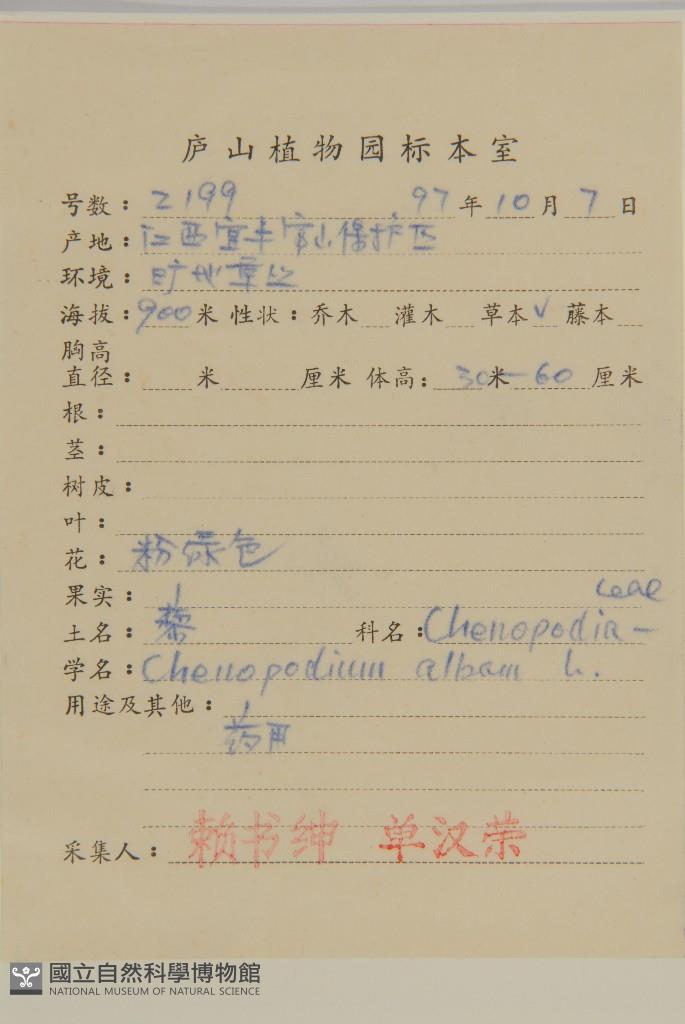 庐山植物园标本室
号数：2199 97年10月7日
产地：江西宜丰官山保护区
环境：旷地草丛
海拔：900米 性状：乔木 灌木 草本✓ 藤本
胸高
直径： 米 厘米 体高：30米—60厘米
根：
茎：
树皮：
叶：
花：粉绿色
果实：
ceae
土名：藜 科名：Chenopodia-
学名：Chenopodium albam L.
用途及其他：
药用
采集人：赖书绅 单汉荣
國立自然科學博物館
NATIONAL MUSEUM OF NATURAL SCIENCE